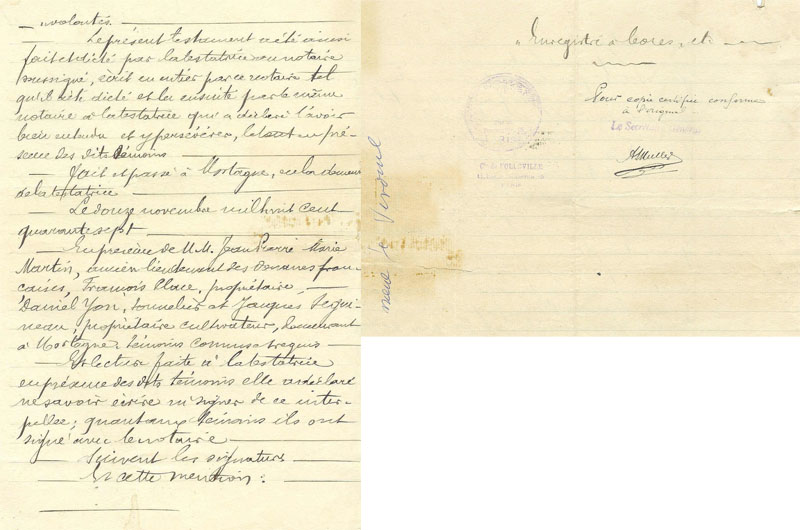 " volontés.
Le présent testament a été ainsi
fait et dicté par la testatrice au notaire
soussigné, écrit en entier par ce notaire tel
qu'il a été dicté et lu ensuite par le même
notaire à la testatrice qui a déclaré l'avoir
bien entendu et y persévérer, le tout en pré-
sence des dits témoins
Fait et passé à Mortagne, en la demeure
de la testatrice
Le douze novembre mil huit cent
quarante sept
En présence de M.M. Jean Pierre Marie
Martin, ancien lieutenant des Douanes fran-
caises, François Place, propriétaire,
Daniel Yon, tonnelier et Jacques Segui-
neau, propriétaire cultivateur, demeurant
à Mortagne, témoins connus et requis
Et lecture faite à la testatrice
en présence des dits témoins elle a déclaré
ne savoir écrire ni signer de ce inter-
pellée; quant aux témoins ils ont
signé avec le notaire
Suivent les signatures
Et cette mention:
" Enregistré à Cozes, etc
Pour copie certifiée conforme
à l'original
Le
AMuller
FOLLEVILLE